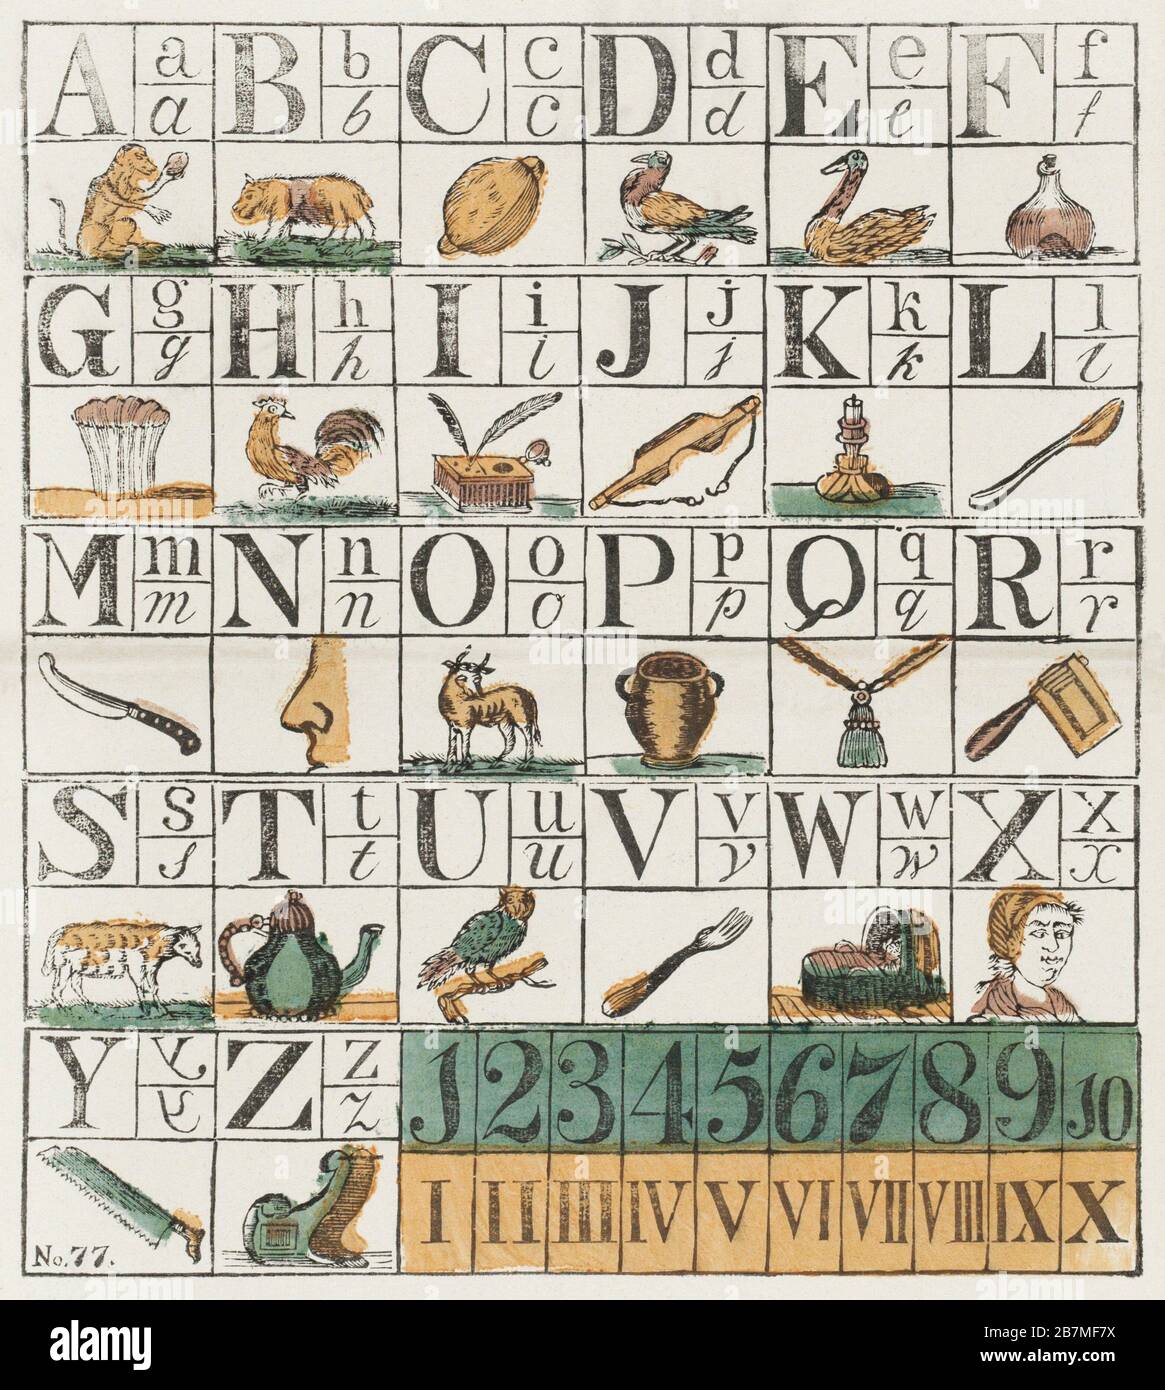 A a a B b b C c c D d d E e e F f f
G g g H h h I i i J j j K k k L l l
M m m N n n O o o P p p Q q q R r r
S s s T t t U u u V v v W w w X x x
Y y y Z z z J 2 3 4 5 6 7 8 9 J0
I II III IV V VI VII VIII IX X
No. 77.
alamy
a
alamy
a
alamy
alamy
Image ID: 2B7MF7X
www.alamy.com